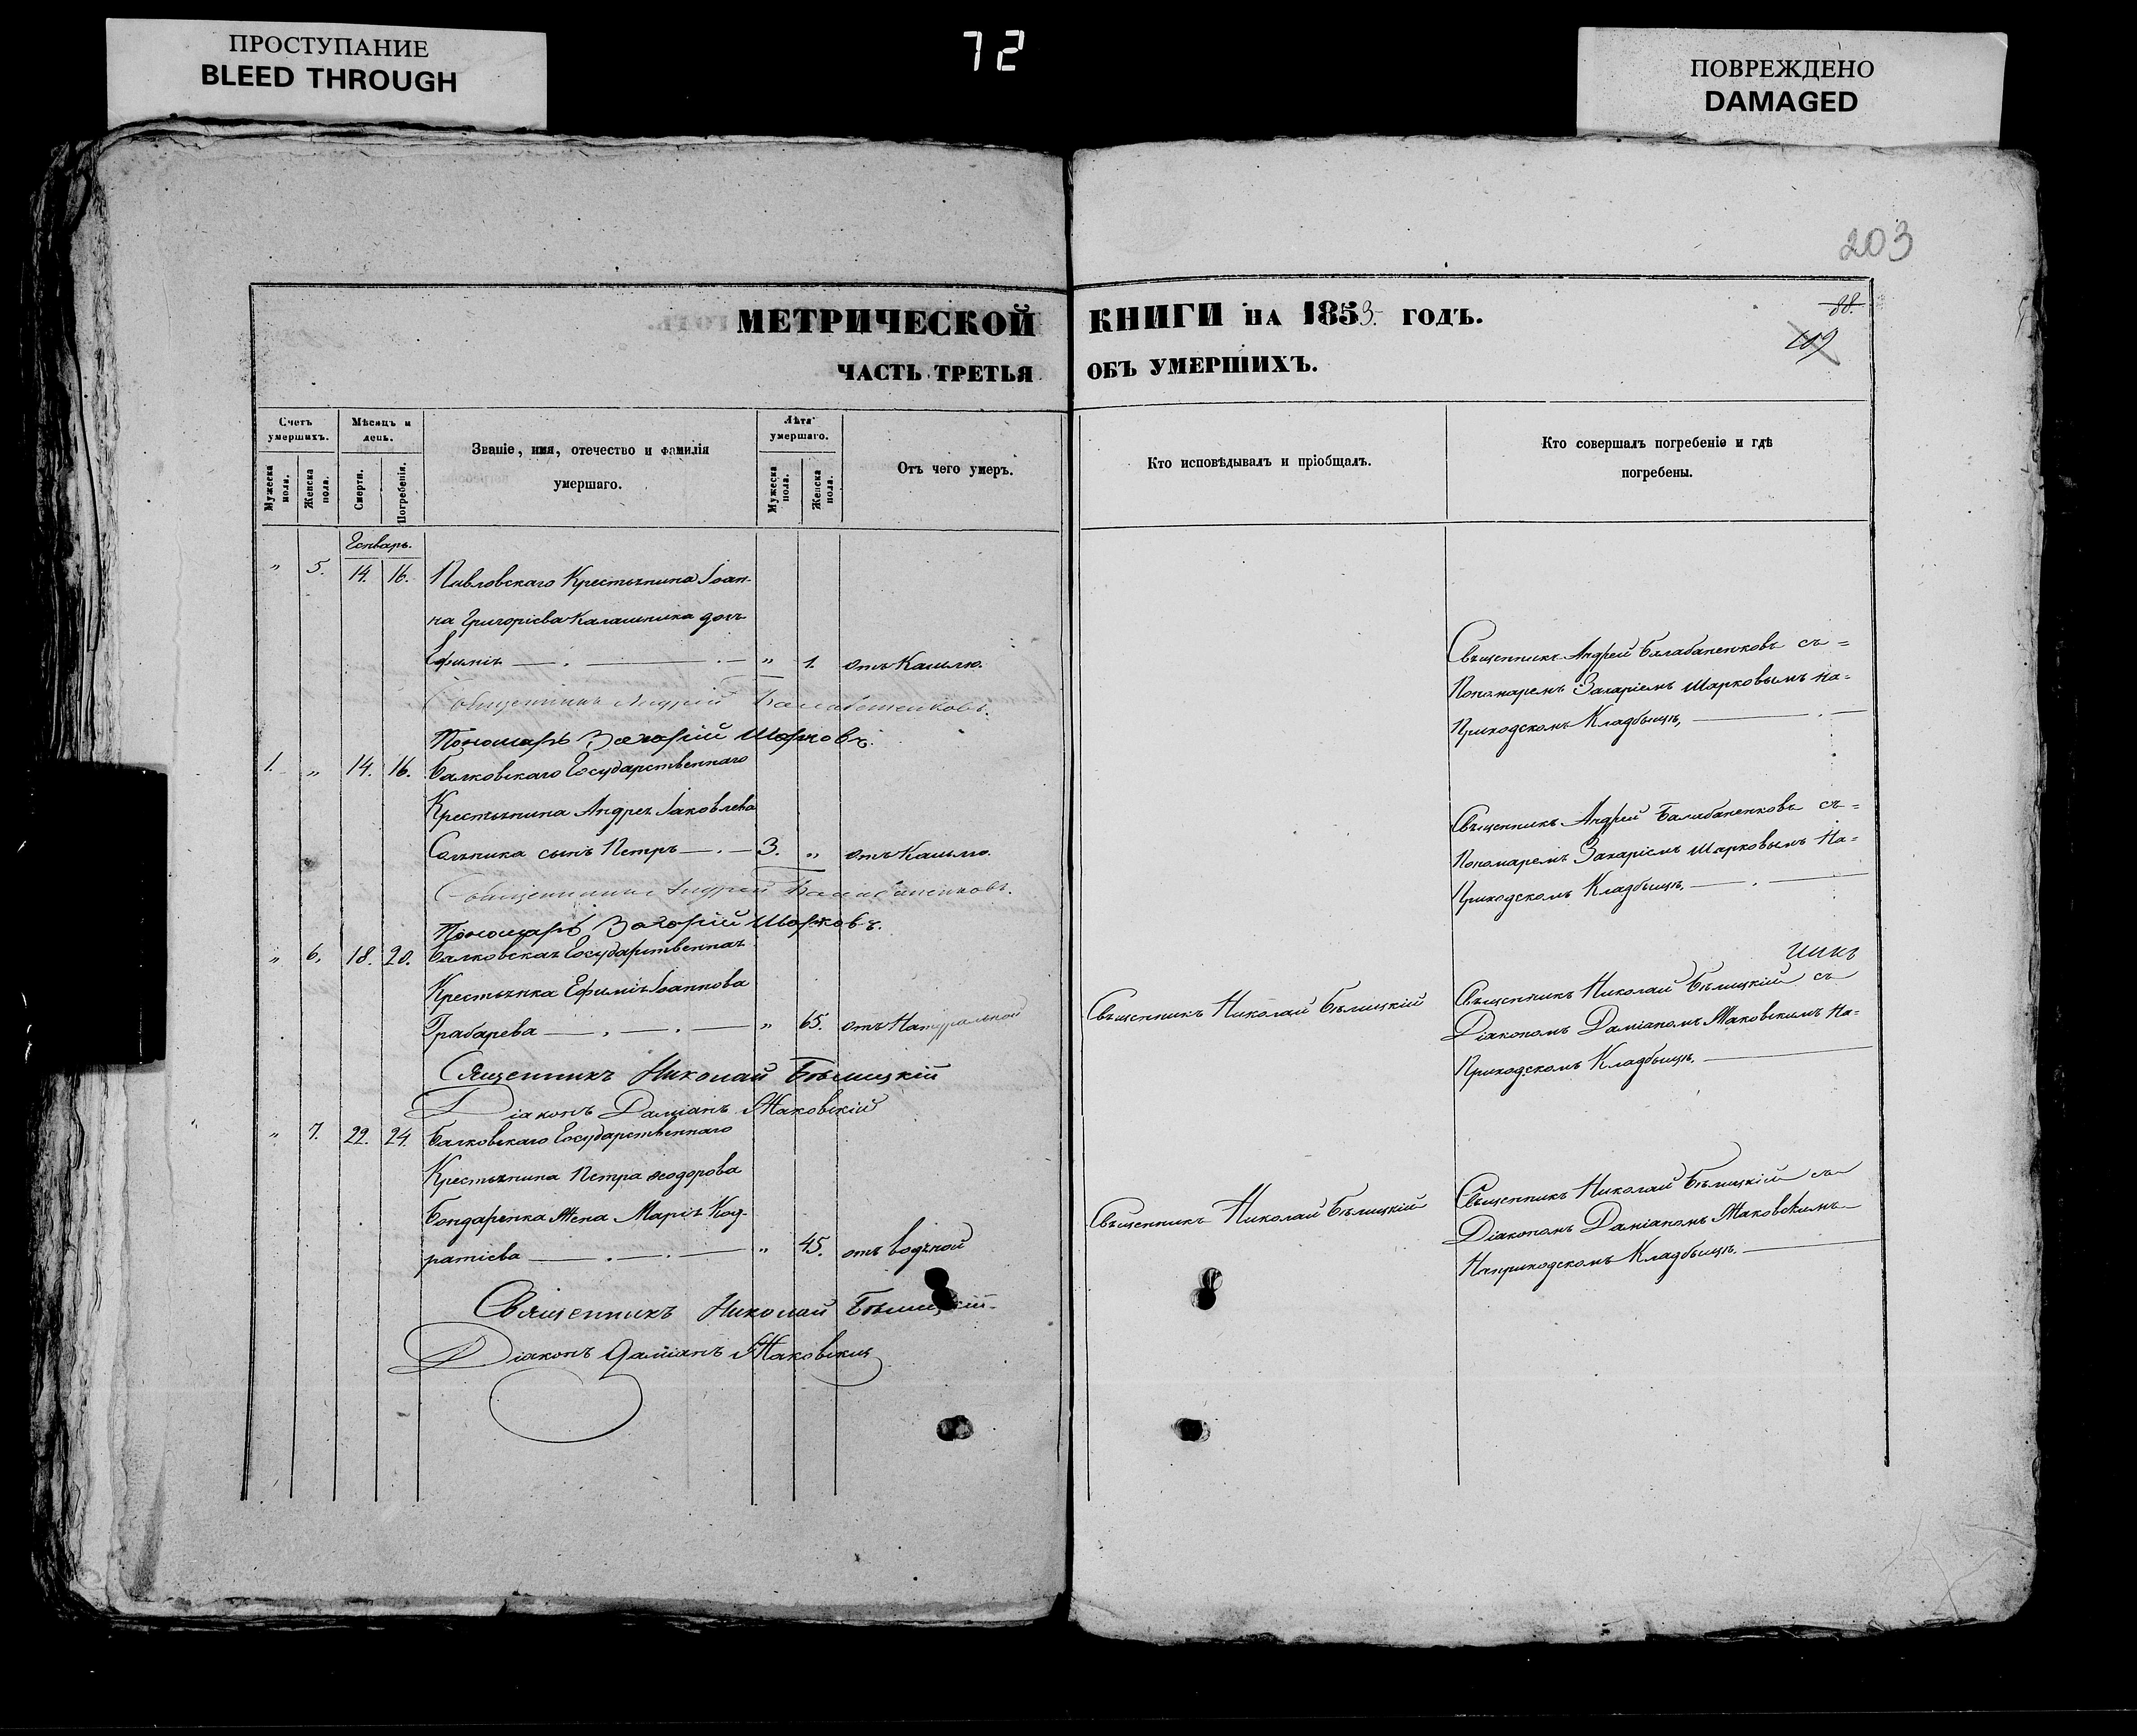 ПРОСТУПАНИЕ
BLEED THROUGH
72
ПОВРЕЖДЕНО
DAMAGED
203
МЕТРИЧЕСКОЙ КНИГИ НА 1853. ГОДЪ.
88.
109
ЧАСТЬ ТРЕТЬЯ ОБЪ УМЕРШИХЪ.
Счетъ умершихъ.
Мѣсяцъ и день.
Званіе, имя, отечество и фамилія умершаго.
Лѣта умершаго.
Отъ чего умеръ.
Кто исповѣдывалъ и пріобщалъ.
Кто совершалъ погребеніе и гдѣ погребены.
Мужеска пола.
Женска пола.
Смерти.
Погребенія.
Мужеска пола.
Женска пола.
Генварь.
" 5. 14. 16. Павловскаго Крестьянина Іоан-
на Григоріева Калашника дочь
Ефимія " 1. отъ Кашлю.
Священникъ Андрей Балабаненковъ с=
Пономаремъ Захаріемъ Шарковымъ на=
Приходскомъ Кладбищѣ,
Священникъ Андрей Балабаненковъ.
Пономарь Захарій Шарковъ.
1. " 14. 16. Балковскаго Государственнаго
Крестьянина Андрея Іаковлева
сынъ Петръ 3. " отъ Кашлю.
Священникъ Андрей Балабаненковъ съ=
Пономаремъ Захаріемъ Шарковымъ На=
Приходскомъ Кладбищѣ.
Священникъ Андрей Балабаненковъ.
Пономарь Захарій Шарковъ.
" 6. 18. 20. Балковская Государственная
Крестьянка Ефимія Іоаннова
Грабарева " 65. отъ Натуральной
Священникъ Николай Бѣлицкій
Священникъ Николай Бѣлицкій съ
Діакономъ Даміаномъ Маковскимъ На=
Приходскомъ Кладбищѣ.
Священникъ Николай Бѣлицкій
Діаконъ Даміанъ Маковскій
" 7. 22. 24. Балковскаго Государственнаго
Крестьянина Петра Ѳеодорова
Бондаренка Жена Марія Код-
ратіева " 45. отъ водяной
Священникъ Николай Бѣлицкій
Священникъ Николай Бѣлицкій съ
Діакономъ Даміаномъ Маковскимъ
На приходскомъ Кладбищѣ.
Священникъ Николай Бѣлицкій.
Діаконъ Даміанъ Маковскій